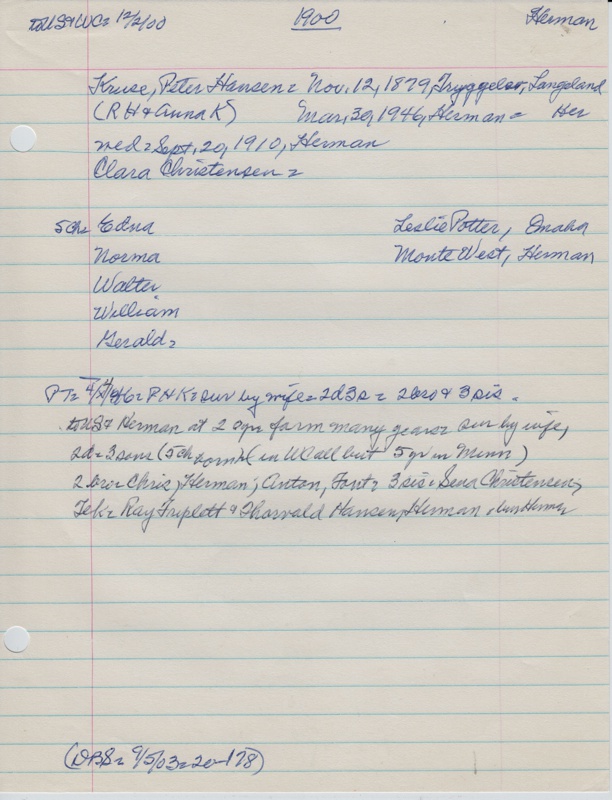 to US & WC = 12/2/00 1900 Herman
Kruse, Peter Hansen = Nov. 12, 1879, Tryggelev, Langeland
(R H & Anna K) Mar, 30, 1946, Herman = Her
med = Sept, 20, 1910, Herman
Clara Christensen =
5 ch = Edna Leslie Potter, Omaha
Norma Monte West, Herman
Walter
William
Gerald =
PT = 4/4/46 = P H K = sur by wife = 2d 3s = 2 bro & 3 sis.
to US & Herman at 20 yr = farm many years = sur by wife,
2d = 3 sons (5 ch born) (in WC all but 5 yr in Minn)
2 bro = Chris, Herman; Anton, Font = 3 sis = Sena Christensen,
Tek = Ray Triplett & Thorvald Hansen, Herman, bur Herman
(DBS = 9/5/03 = 20-178)